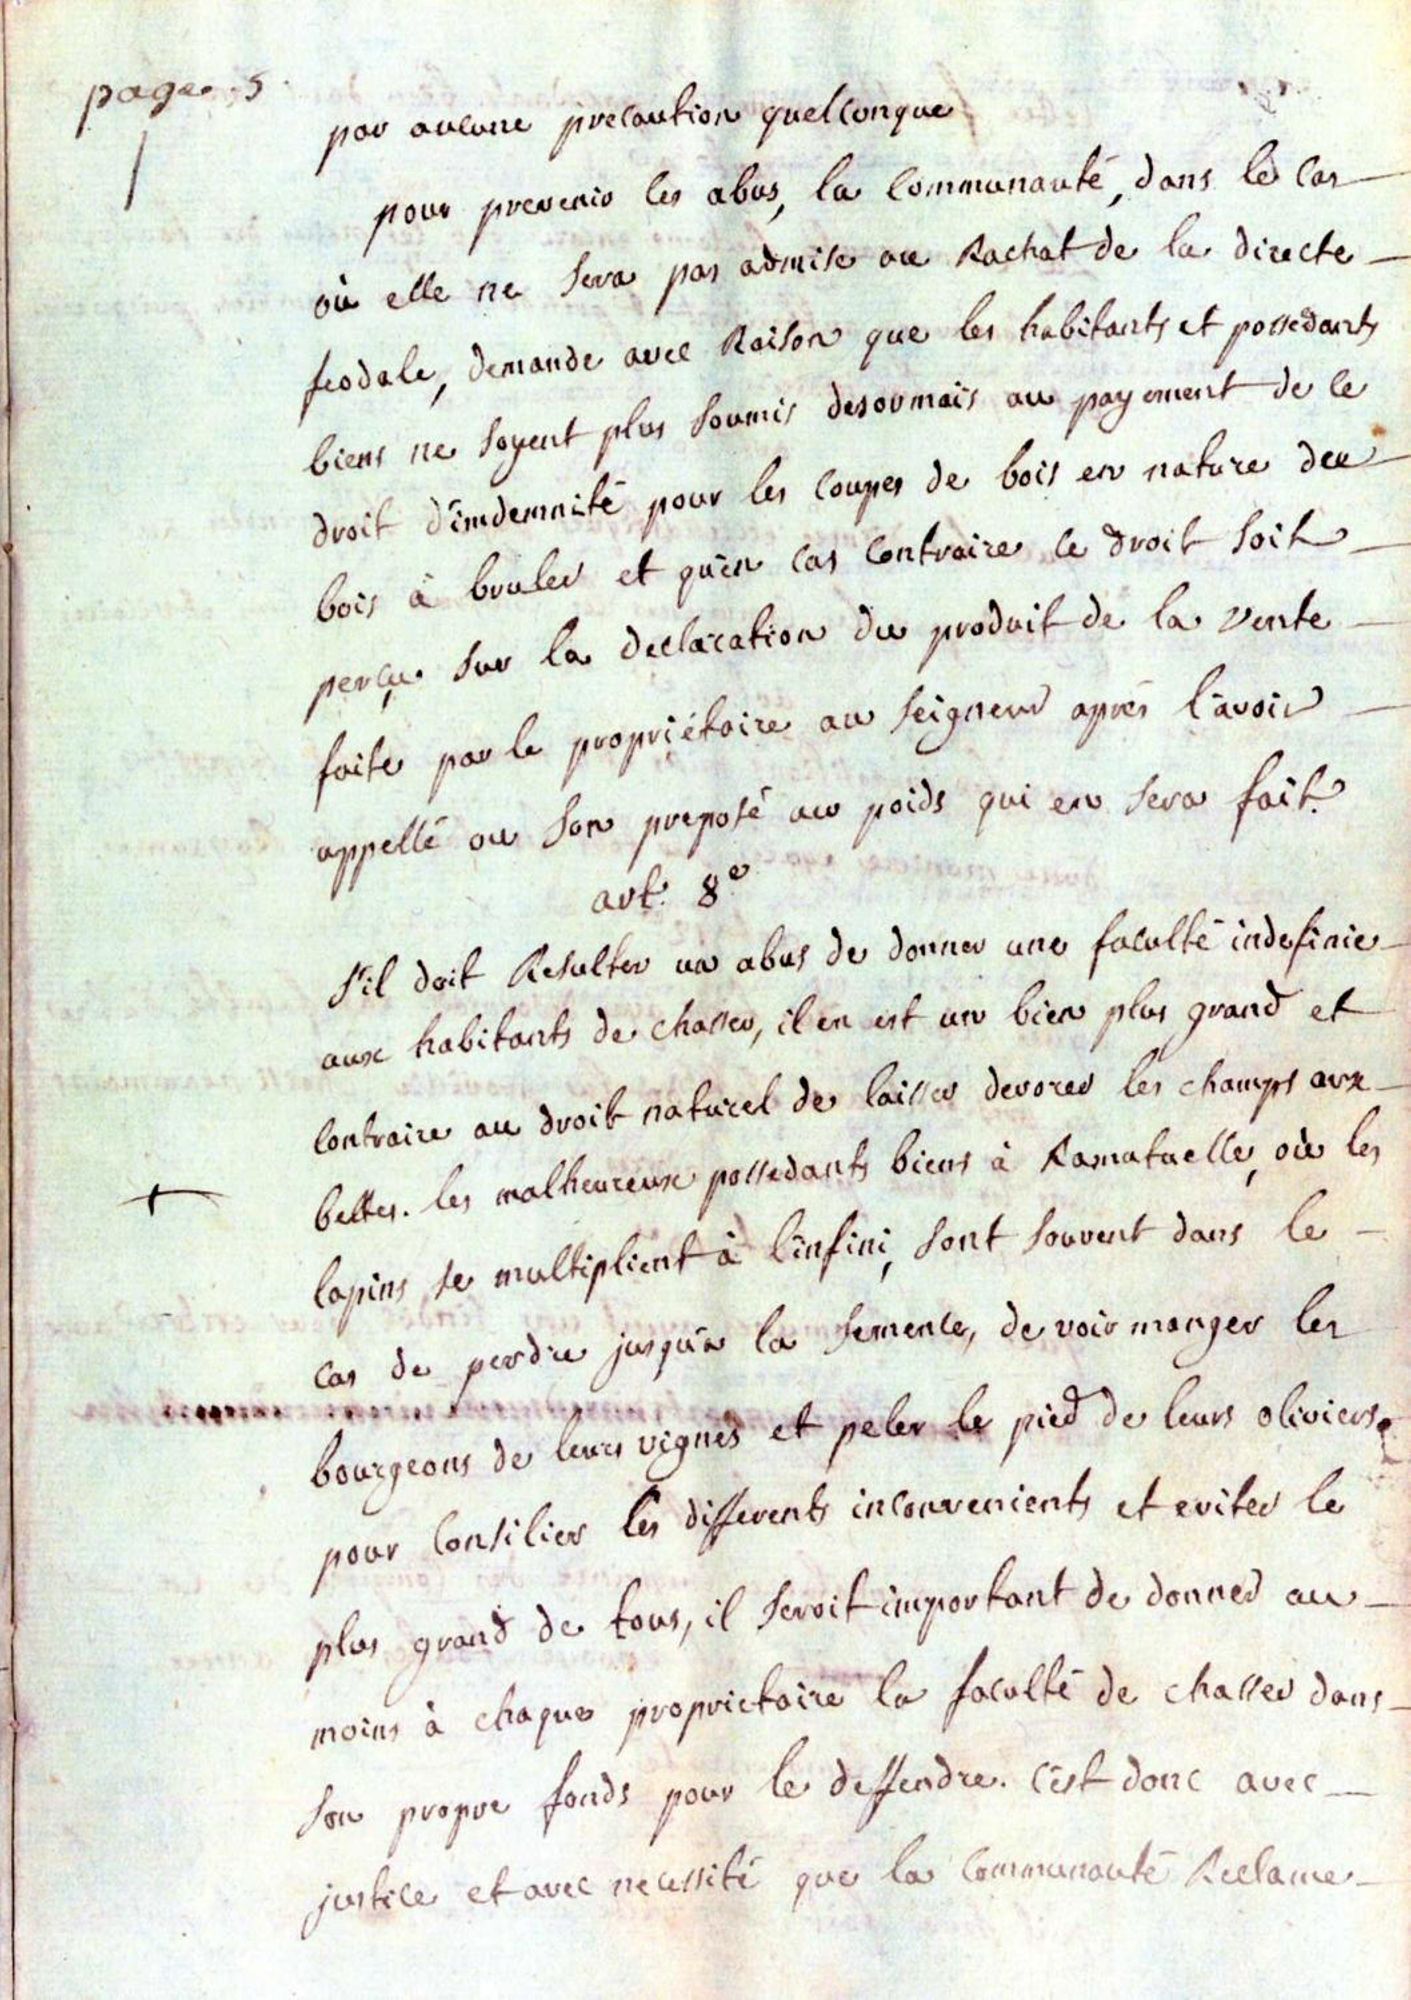 page. 5.
par aucune precaution quelconque
pour prevenir les abus, la communauté, dans le cas
où elle ne sera pas admise au Rachat de la directe
feodale, demande avec Raison que les habitants et possedants
biens ne soyent plus soumis desormais au payement de ce
droit d'imdemnité pour les coupes de bois en nature deu
bois à bruler et qu'en cas contraire ce droit soit
perçu sur la declaration du produit de la vente
faite par le propriétaire au seigneur aprés l'avoir
appellé ou son preposé au poids qui en sera fait.
art. 8e
s'il doit Resulter un abus de donner une faculté indefinie
aux habitants de chasser, il en est un bien plus grand et
contraire au droit naturel de laisser devorer les champs aux
bettes. les malheureux possedants biens à Ramatuelle, où les
lapins se multiplient à l'infini, sont souvent dans le
cas de perdre jusqu'a la semence, de voir manger les
bourgeons de leurs vignes et peler le pied de leurs oliviers
pour consilier les differents inconvenients et eviter le
plus grand de tous, il seroit important de donner au
moins à chaque proprietaire la faculté de chasser dans
son propre fonds pour le deffendre. c'est donc avec
justice et avec necessité que la communauté Reclame